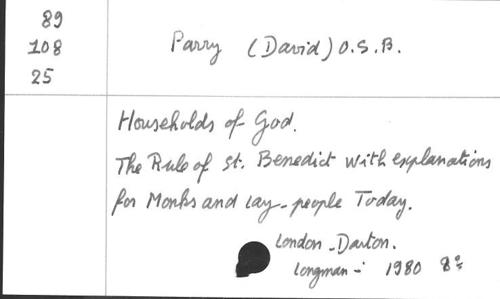 89
108
25
Parry (David) O.S.B.
Households of God.
The Rule of St. Benedict with explanations
for Monks and lay-people Today.
London - Darton.
Longman - 1980 8º